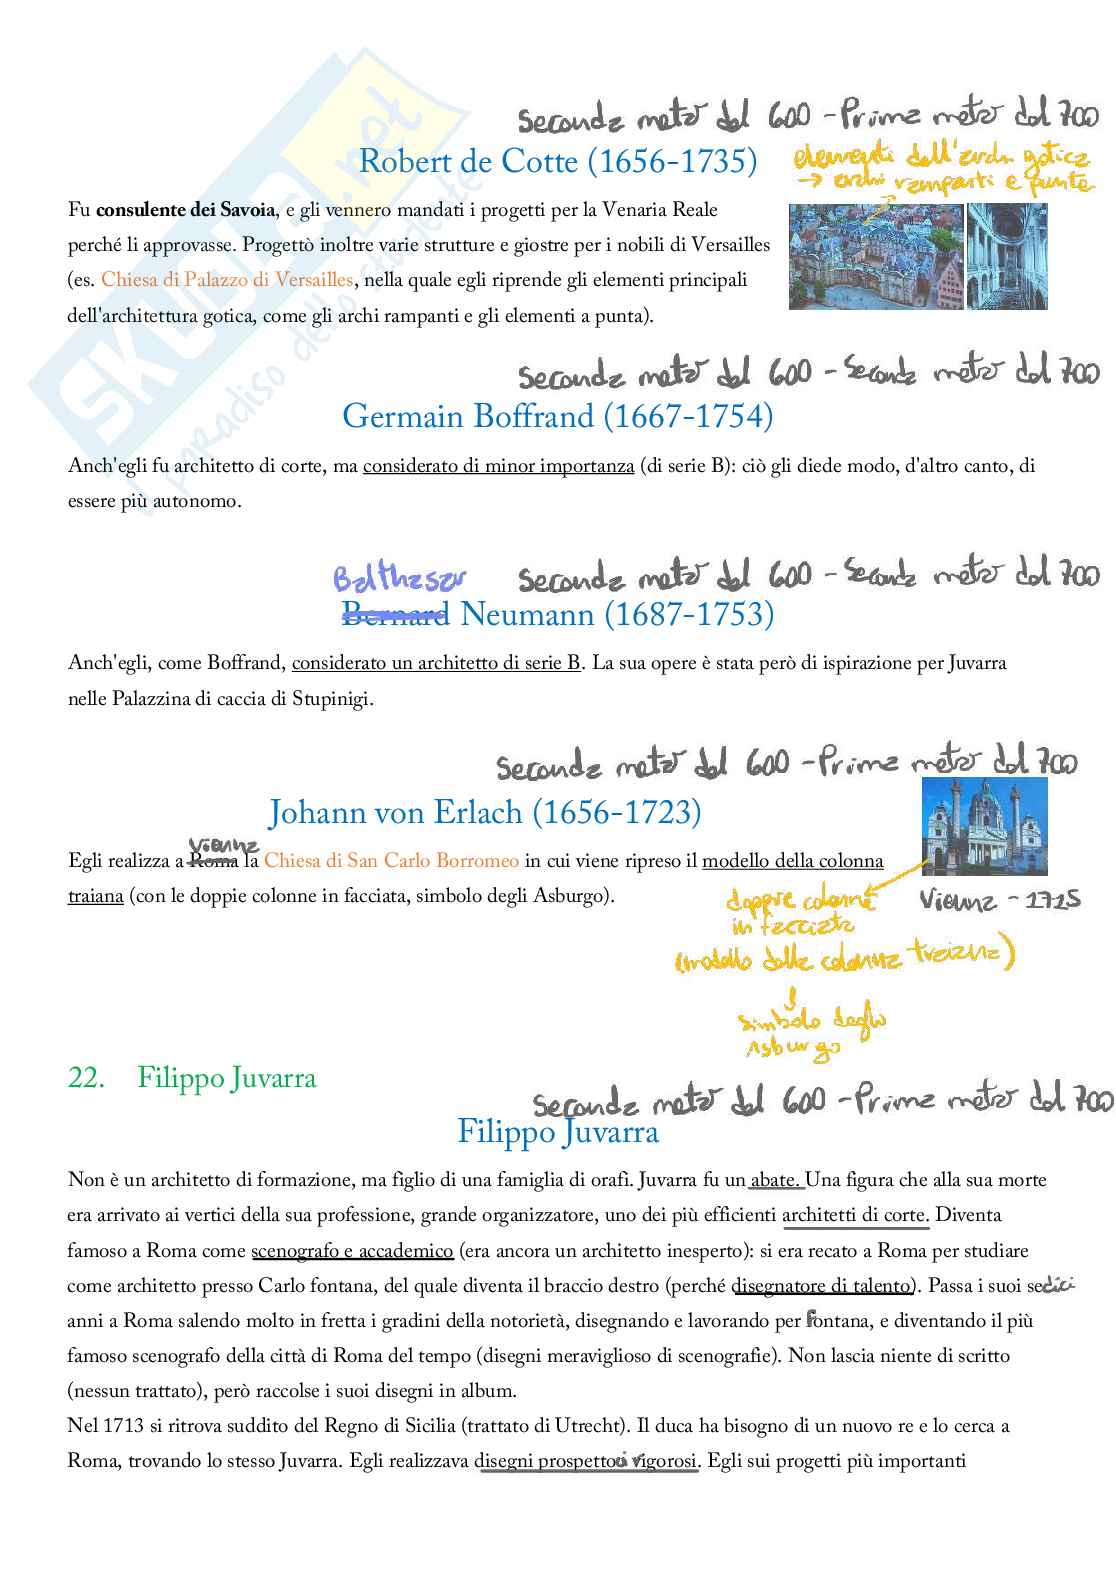 SKUOLA.net
il paradiso dello studente
Seconda metà del 600 - Prima metà del 700
Robert de Cotte (1656-1735)
elementi dell'arch. gotica
→ archi rampanti e punte
Fu consulente dei Savoia, e gli vennero mandati i progetti per la Venaria Reale
perché li approvasse. Progettò inoltre varie strutture e giostre per i nobili di Versailles
(es. Chiesa di Palazzo di Versailles, nella quale egli riprende gli elementi principali
dell'architettura gotica, come gli archi rampanti e gli elementi a punta).
Seconda metà del 600 - Seconda metà del 700
Germain Boffrand (1667-1754)
Anch'egli fu architetto di corte, ma considerato di minor importanza (di serie B): ciò gli diede modo, d'altro canto, di
essere più autonomo.
Balthasar Seconda metà del 600 - Seconda metà del 700
Bernard Neumann (1687-1753)
Anch'egli, come Boffrand, considerato un architetto di serie B. La sua opere è stata però di ispirazione per Juvarra
nelle Palazzina di caccia di Stupinigi.
Seconda metà del 600 - Prima metà del 700
Johann von Erlach (1656-1723)
Vienna
Egli realizza a Roma la Chiesa di San Carlo Borromeo in cui viene ripreso il modello della colonna
traiana (con le doppie colonne in facciata, simbolo degli Asburgo).
Vienna - 1715
doppie colonne
in facciata
(modello della colonna traiana)
simbolo degli
Asburgo
22. Filippo Juvarra
Seconda metà del 600 - Prima metà del 700
Filippo Juvarra
Non è un architetto di formazione, ma figlio di una famiglia di orafi. Juvarra fu un abate. Una figura che alla sua morte
era arrivato ai vertici della sua professione, grande organizzatore, uno dei più efficienti architetti di corte. Diventa
famoso a Roma come scenografo e accademico (era ancora un architetto inesperto): si era recato a Roma per studiare
come architetto presso Carlo fontana, del quale diventa il braccio destro (perché disegnatore di talento). Passa i suoi sedici
anni a Roma salendo molto in fretta i gradini della notorietà, disegnando e lavorando per Fontana, e diventando il più
famoso scenografo della città di Roma del tempo (disegni meraviglioso di scenografie). Non lascia niente di scritto
(nessun trattato), però raccolse i suoi disegni in album.
Nel 1713 si ritrova suddito del Regno di Sicilia (trattato di Utrecht). Il duca ha bisogno di un nuovo re e lo cerca a
Roma, trovando lo stesso Juvarra. Egli realizzava disegni prospettici vigorosi. Egli sui progetti più importanti